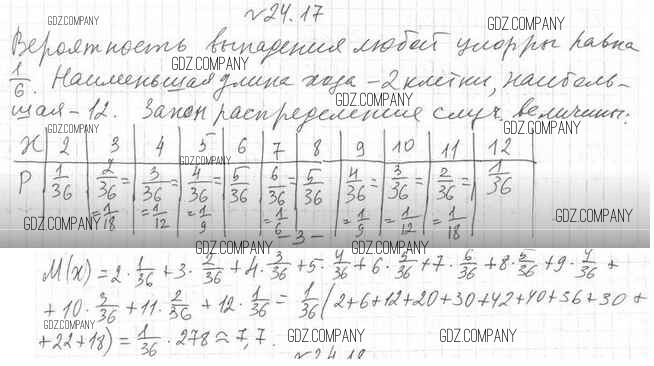 №24.17
GDZ.COMPANY
GDZ.COMPANY
Вероятность выпадения любой цифры равна
GDZ.COMPANY
1/6. Наименьшая длина хода – 2 клетки, наиболь-
GDZ.COMPANY
щая – 12. Закон распределения случ. величины:
GDZ.COMPANY
GDZ.COMPANY
X 2 3 4 5 6 7 8 9 10 11 12
GDZ.COMPANY
P 1/36 2/36=1/18 3/36=1/12 4/36=1/9 5/36 6/36=1/6 5/36 4/36=1/9 3/36=1/12 2/36=1/18 1/36
GDZ.COMPANY
GDZ.COMPANY
-3-
GDZ.COMPANY
GDZ.COMPANY
M(x)=2·1/36+3·2/36+4·3/36+5·4/36+6·5/36+7·6/36+8·5/36+9·4/36+
+10·3/36+11·2/36+12·1/36=1/36(2+6+12+20+30+42+40+36+30+
GDZ.COMPANY
+22+18)=1/36·278≈7,7.
GDZ.COMPANY
GDZ.COMPANY
№24.18